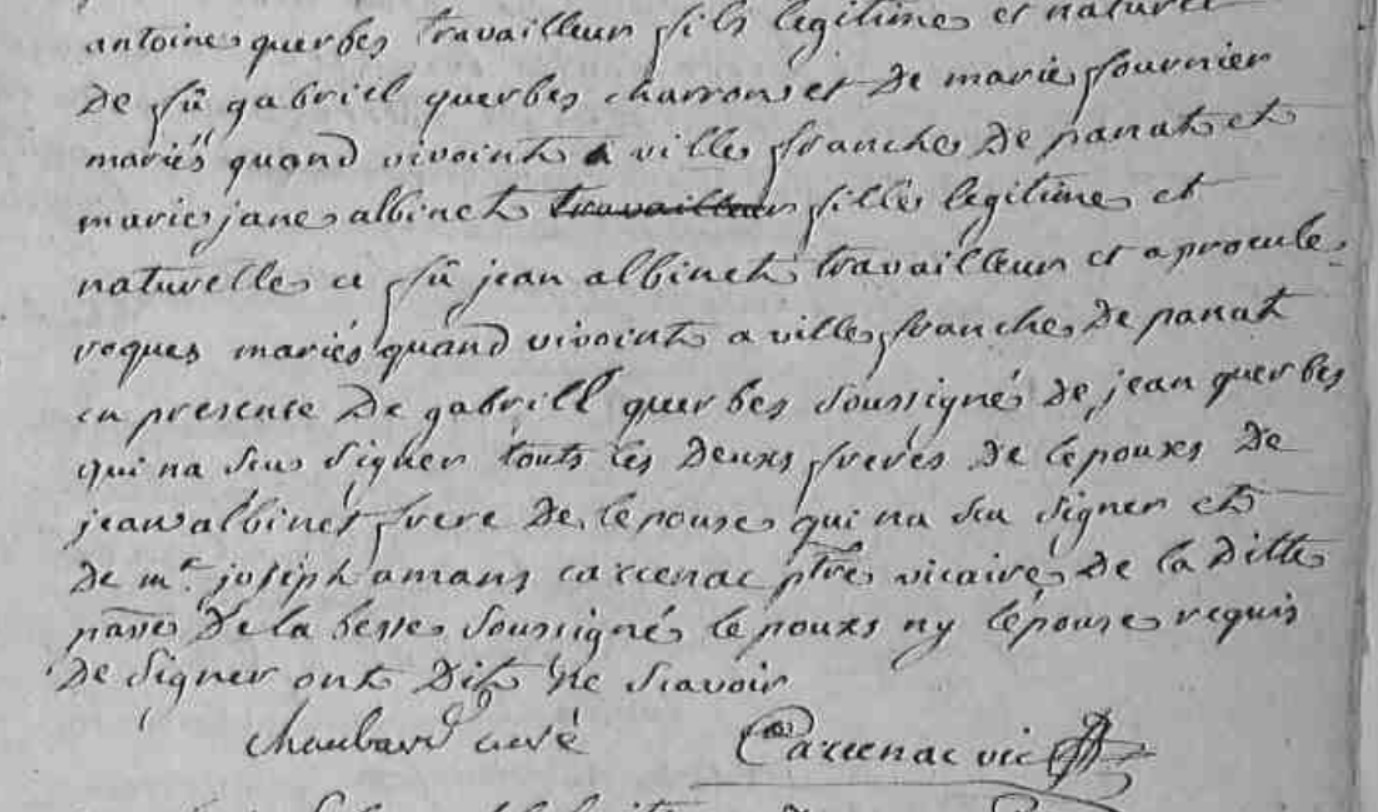 antoine querbes travailleur fils legitime et naturel
de fû gabriel querbes charron et de marie fournier
mariés quand vivoint a ville franche de panat et
marie jane albinet travailleur fille legitime et
naturelle a fû jean albinet travailleur et a procule
roques mariés quand vivoint a ville franche de panat
en presence de gabrill querbes soussigné de jean querbes
qui na seu signer touts les deuxs freres de lepouxs de
jean albinet frere de lepouse qui na seu signer et
de mr. joseph amans carcenac ptre vicaire de la ditte
parre de la besse soussigné lepouxs ny lépouse requis
de signer ont dit ne scavoir
chaubard curé Carcenac vic